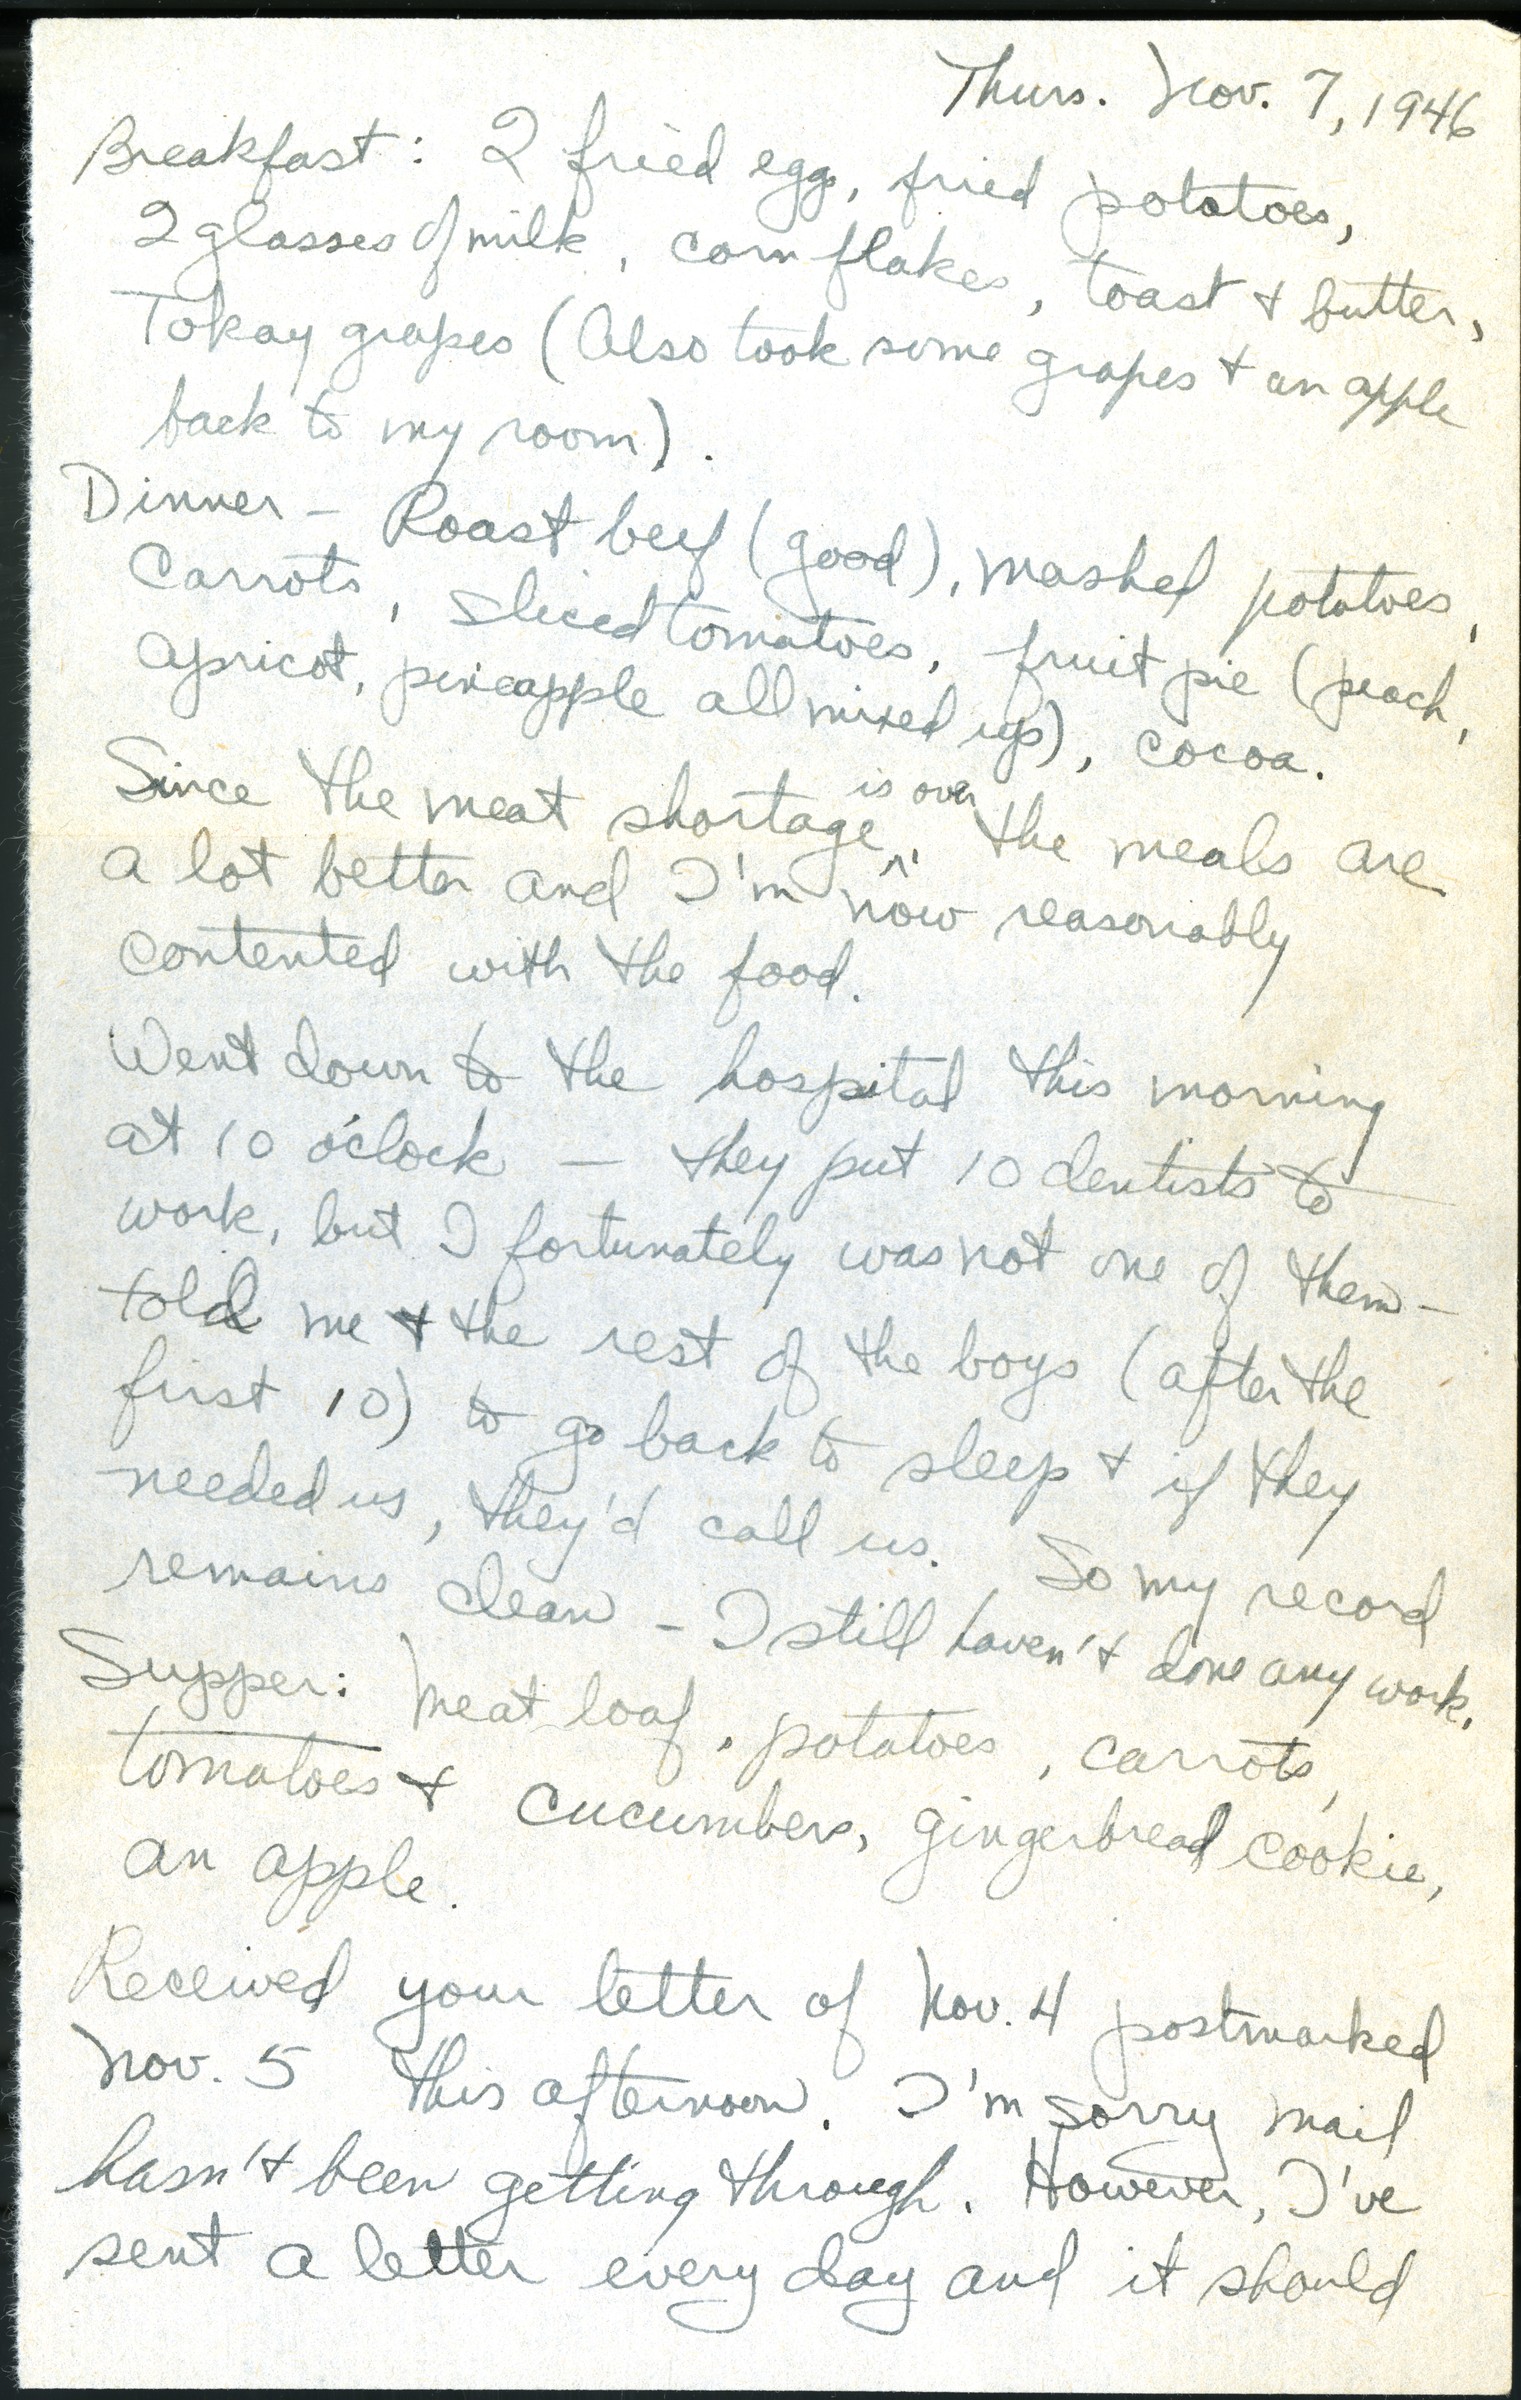 Thurs. Nov. 7, 1946
Breakfast: 2 fried eggs, fried potatoes,
2 glasses of milk, corn flakes, toast + butter,
Tokay grapes (Also took some grapes + an apple
back to my room).
Dinner - Roast beef (good), mashed potatoes,
Carrots, sliced tomatoes, fruit pie (peach,
apricot, pineapple all mixed up), cocoa.
Since the meat shortage is over, the meals are
a lot better and I'm now reasonably
contented with the food.
Went down to the hospital this morning
at 10 o'clock — they put 10 dentists to
work, but I fortunately was not one of them -
told me + the rest of the boys (after the
first 10) to go back to sleep + if they
needed us, they'd call us. So my record
remains clean - I still haven't done any work.
Supper: Meat loaf, potatoes, carrots,
tomatoes + cucumbers, gingerbread cookie,
an apple.
Received your letter of Nov. 4 postmarked
Nov. 5 this afternoon. I'm sorry mail
hasn't been getting through. However, I've
sent a letter every day and it should